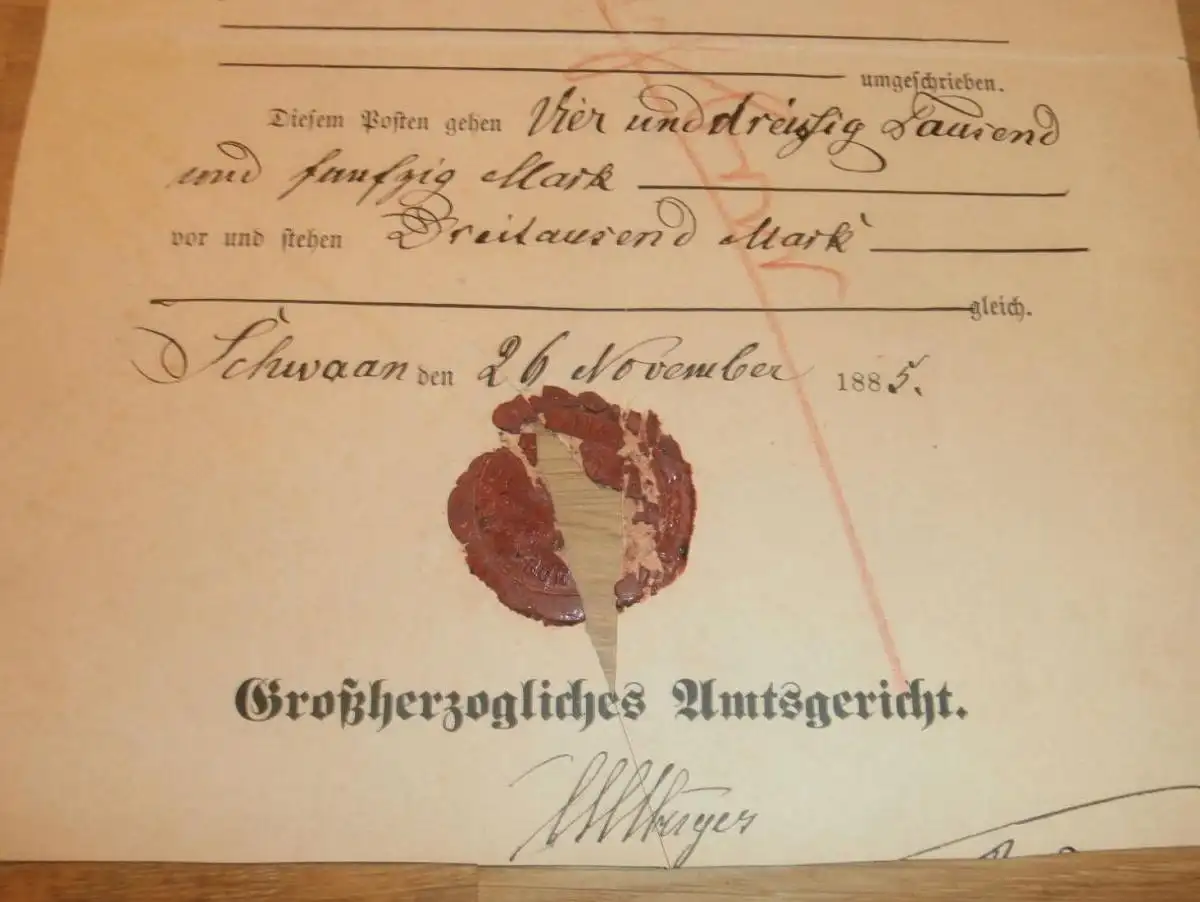 umgeschrieben.
Diesem Posten gehen Vier und dreißig Tausend
und funfzig Mark
vor und stehen Dreitausend Mark
gleich.
Schwaan den 26 November 1885.
Großherzogliches Amtsgericht.